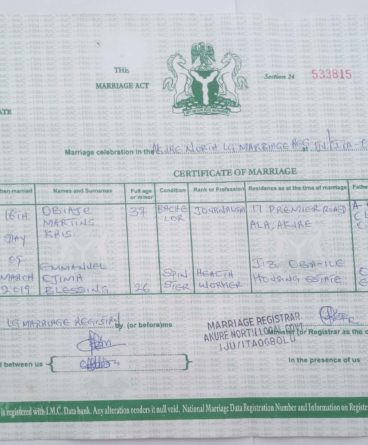 THE
MARRIAGE ACT
Section 24 533815
ATE
Marriage celebration in the AKURE NORTH LG MARRIAGE REG
CERTIFICATE OF MARRIAGE
hen married Names and Surnames Full age or minor Condition Rank or Profession Residence as at the time of marriage Fathe
16TH OBIAJE 37 BACHE JOURNALISM 17 PREMIER ROAD
DAY MARTINS LOR ALA, AKURE
OF KHIS
EMMANUEL
MARCH SPIN HEALTH JIB OBAFILE
2019 BLESSING 26 STER WORKER HOUSING ESTATE
LG MARRIAGE REGISTRY by (or before)me MARRIAGE REGISTRAR
AKURE NORTH LOCAL GOVT
Minister (or Registrar as the c
IJU/ITAOGBOLU
d between us In the presence of us
is registered with I.M.C. Data bank. Any alteration renders it null void. National Marriage Data Registration Number and Information on Regist